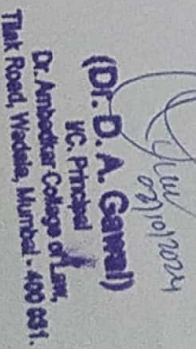 02/10/2024
(Dr. D. A. Gawali)
I/C. Principal
Dr. Ambedkar College of Law,
Tilak Road, Wadala, Mumbai - 400 031.